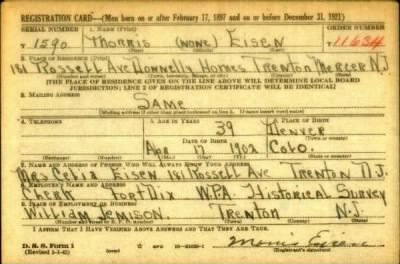 REGISTRATION CARD—(Men born on or after February 17, 1897 and on or before December 31, 1921)
SERIAL NUMBER 1. NAME (Print) ORDER NUMBER
1590 Morris (NONE) Eisen 11634
2. PLACE OF RESIDENCE (Print)
181 Rossell Ave Donnelly Homes Trenton Mercer N.J.
(Number and street) (Town, township, village, or city) (County) (State)
[THE PLACE OF RESIDENCE GIVEN ON THE LINE ABOVE WILL DETERMINE LOCAL BOARD
JURISDICTION; LINE 2 OF REGISTRATION CERTIFICATE WILL BE IDENTICAL]
3. MAILING ADDRESS
SAME
[Mailing address if other than place indicated on line 2. If same insert word same]
4. TELEPHONE 5. AGE IN YEARS 6. PLACE OF BIRTH
39 Denver
DATE OF BIRTH (Town or county)
Apr 17 1902 Colo.
(Exchange) (Number) (Mo.) (Day) (Yr.) (State or country)
7. NAME AND ADDRESS OF PERSON WHO WILL ALWAYS KNOW YOUR ADDRESS
Mrs Celia Eisen 181 Rossell Ave Trenton N.J.
8. EMPLOYER'S NAME AND ADDRESS
Fort Dix W.P.A. Historical Survey
9. PLACE OF EMPLOYMENT OR BUSINESS
William Jemison. Trenton N.J.
(Number and street or R. F. D. number) (Town) (County) (State)
I AFFIRM THAT I HAVE VERIFIED ABOVE ANSWERS AND THAT THEY ARE TRUE.
D. S. S. Form 1
Morris Eisen
(Registrant's signature)